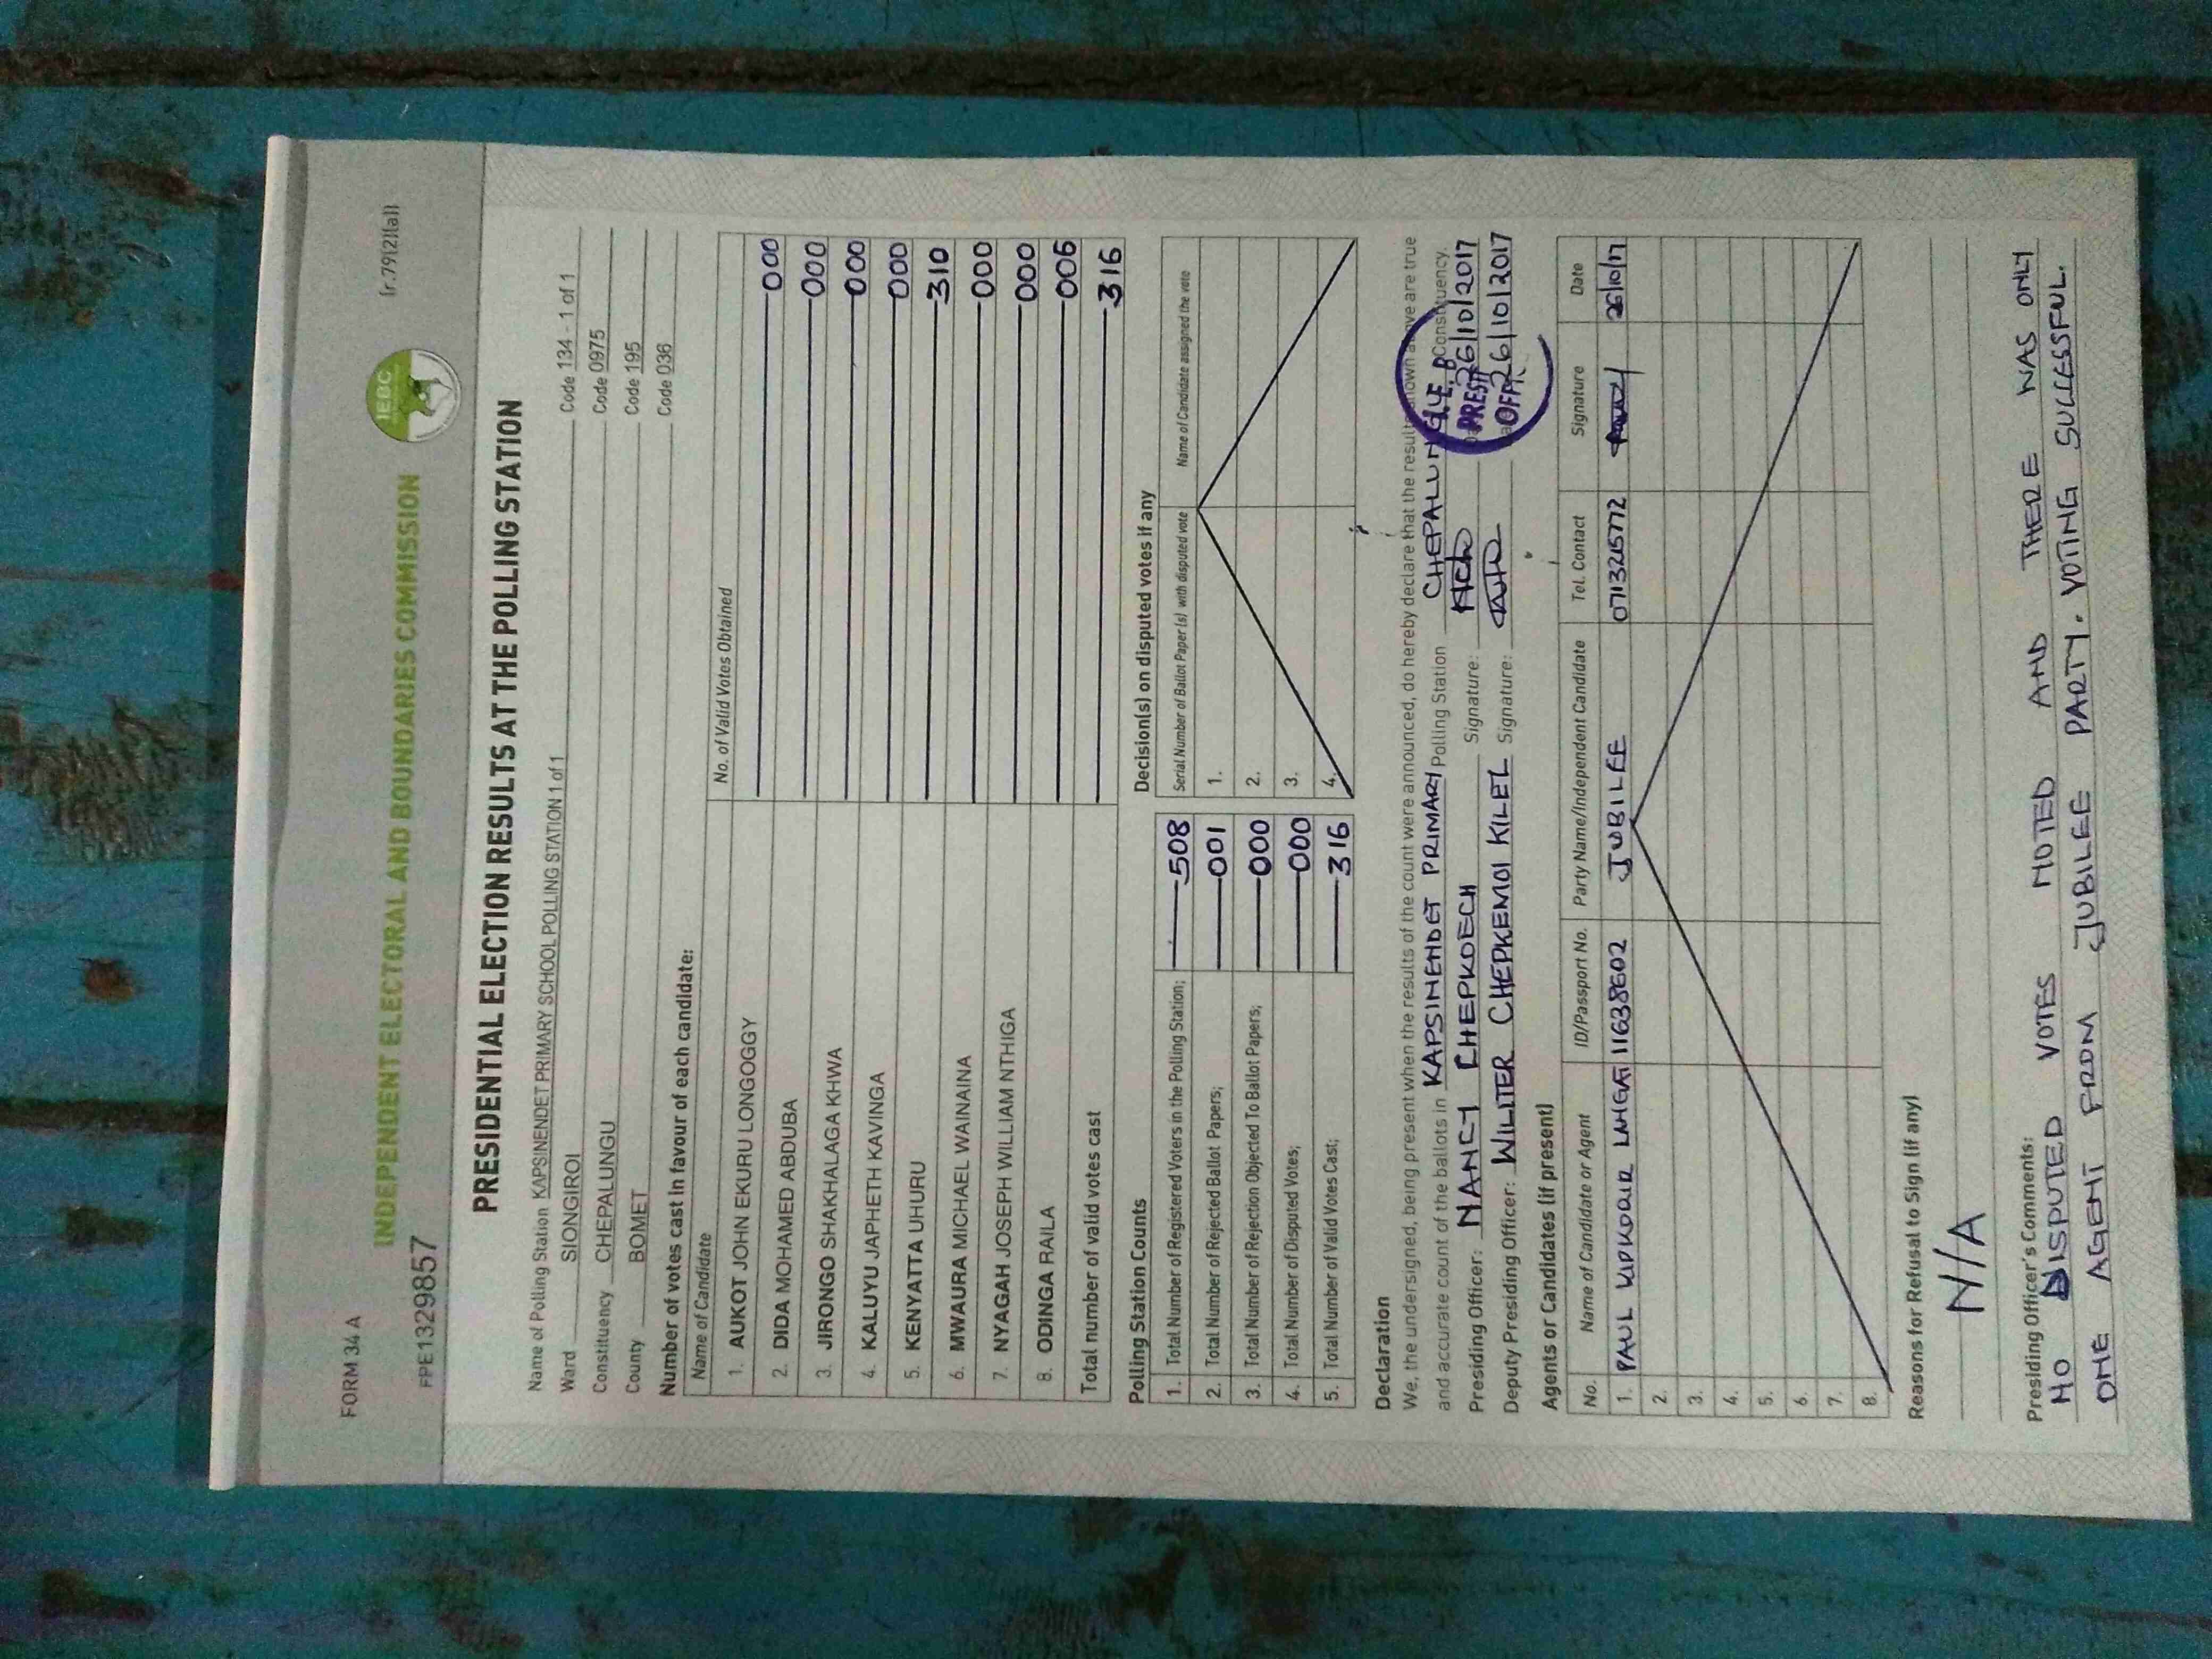 FORM 34 A
(r.79(2)(a))
IEBC
INDEPENDENT ELECTORAL AND BOUNDARIES COMMISSION
FPE1329857
PRESIDENTIAL ELECTION RESULTS AT THE POLLING STATION
Name of Polling Station KAPSINENDET PRIMARY SCHOOL POLLING STATION 1 of 1 Code 134 - 1 of 1
Ward SIONGIROI Code 0975
Constituency CHEPALUNGU Code 195
County BOMET Code 036
Number of votes cast in favour of each candidate:
Name of Candidate No. of Valid Votes Obtained
1. AUKOT JOHN EKURU LONGOGGY 000
2. DIDA MOHAMED ABDUBA 000
3. JIRONGO SHAKHALAGA KHWA 000
4. KALUYU JAPHETH KAVINGA 000
5. KENYATTA UHURU 310
6. MWAURA MICHAEL WAINAINA 000
7. NYAGAH JOSEPH WILLIAM NTHIGA 000
8. ODINGA RAILA 006
Total number of valid votes cast 316
Polling Station Counts
1. Total Number of Registered Voters in the Polling Station; 508
2. Total Number of Rejected Ballot Papers; 001
3. Total Number of Rejection Objected To Ballot Papers; 000
4. Total Number of Disputed Votes; 000
5. Total Number of Valid Votes Cast; 316
Decision(s) on disputed votes if any
Serial Number of Ballot Paper (s) with disputed vote Name of Candidate assigned the vote
1.
2.
3.
4.
Declaration
We, the undersigned, being present when the results of the count were announced, do hereby declare that the results shown above are true
and accurate count of the ballots in KAPSINENDET PRIMARY Polling Station CHEPALUNGU Constituency.
Presiding Officer: NANCY CHEPKOECH Signature: 26/10/2017
Deputy Presiding Officer: WILITER CHEPKEMOI KILEL Signature: 26/10/2017
Agents or Candidates (if present)
No. Name of Candidate or Agent ID/Passport No. Party Name/Independent Candidate Tel. Contact Signature Date
1. PAUL KIPKORIR LANGAT 11638602 JUBILEE 0713215772 26/10/17
2.
3.
4.
5.
6.
7.
8.
Reasons for Refusal to Sign (if any)
N/A
Presiding Officer's Comments:
NO DISPUTED VOTES NOTED AND THERE WAS ONLY
ONE AGENT FROM JUBILEE PARTY. VOTING SUCCESSFUL.